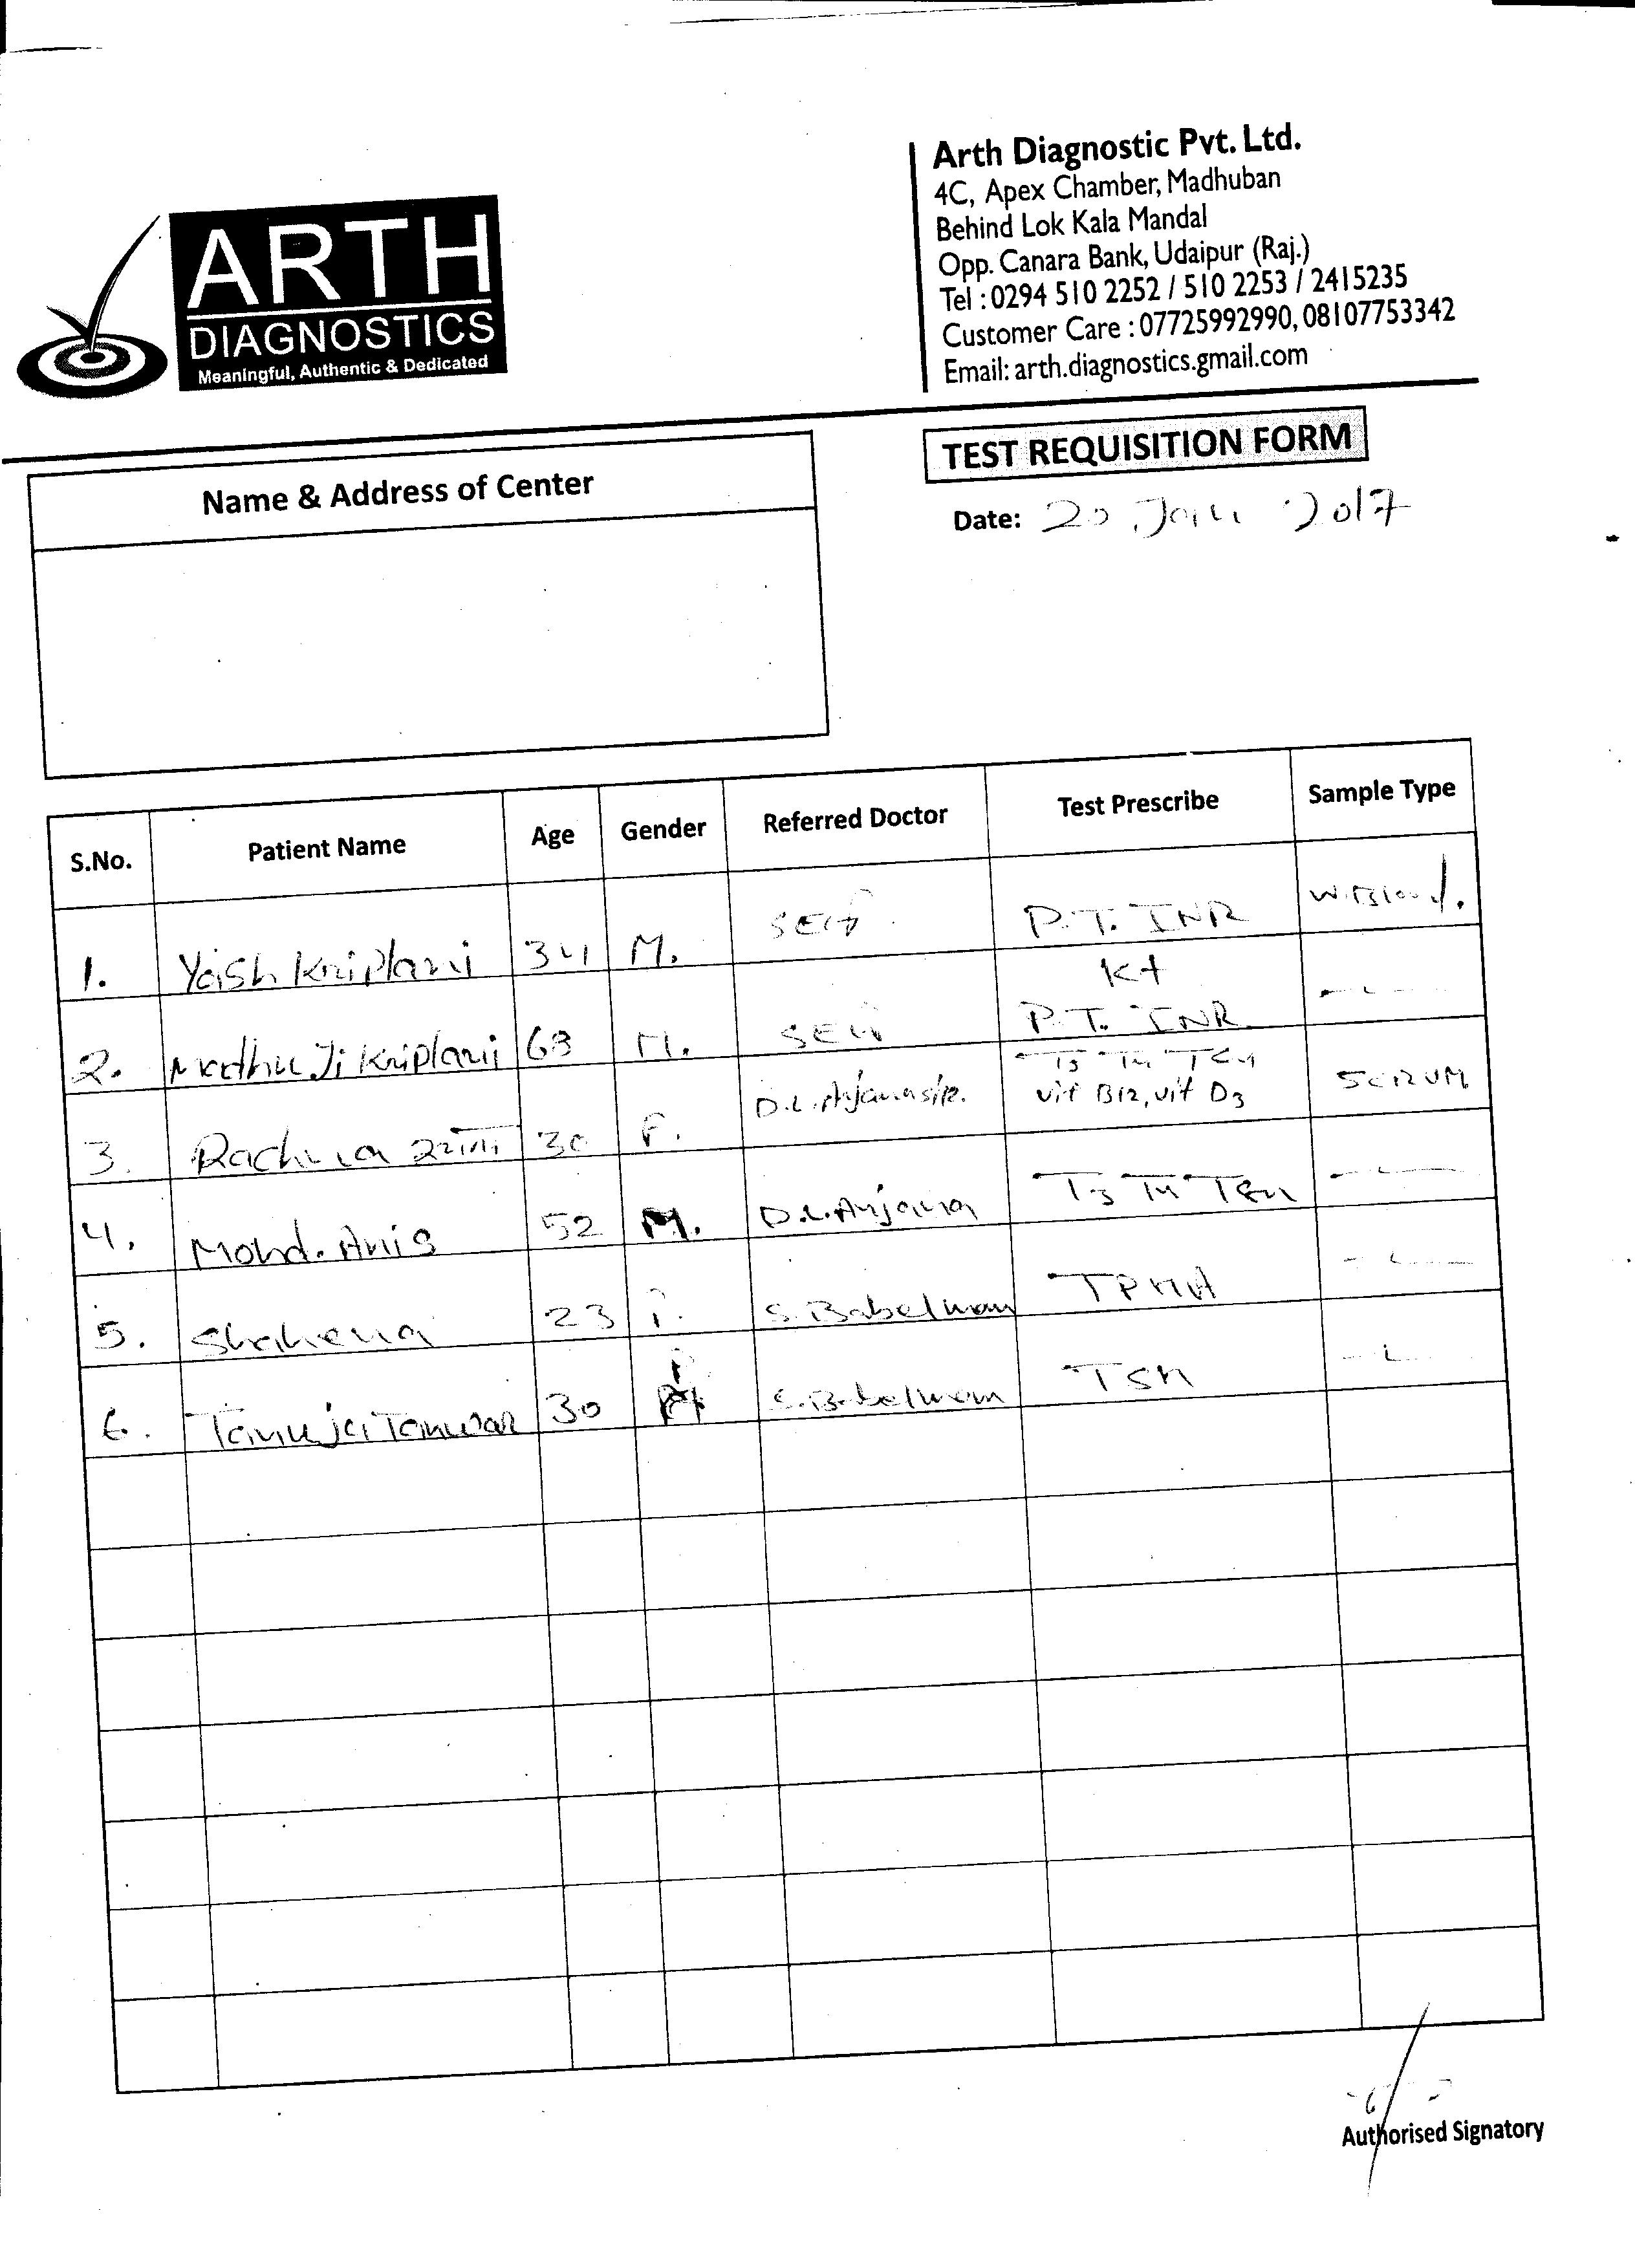 ARTH
DIAGNOSTICS
Meaningful, Authentic & Dedicated
Arth Diagnostic Pvt. Ltd.
4C, Apex Chamber, Madhuban
Behind Lok Kala Mandal
Opp. Canara Bank, Udaipur (Raj.)
Tel : 0294 510 2252 / 510 2253 / 2415235
Customer Care : 07725992990, 08107753342
Email: arth.diagnostics.gmail.com
TEST REQUISITION FORM
Name & Address of Center
Date: 20 Jan 2017
S.No. Patient Name Age Gender Referred Doctor Test Prescribe Sample Type
1. Yash Kriplani 34 M. SELF P.T. INR W.Blood.
K+
2. Ji Kriplani 68 M. SELF P.T. INR
T3 T4 TSH
3. 30 F. D.L. Vit B12, Vit D3 SERUM
4. Mohd. Anis 52 M. D.L. Anjana T3 T4 TSH
5. Shahena 23 F. S. Babelwam TPHA
6. Tanuja Tanwar 30 F S. Babelwam TSH
Authorised Signatory